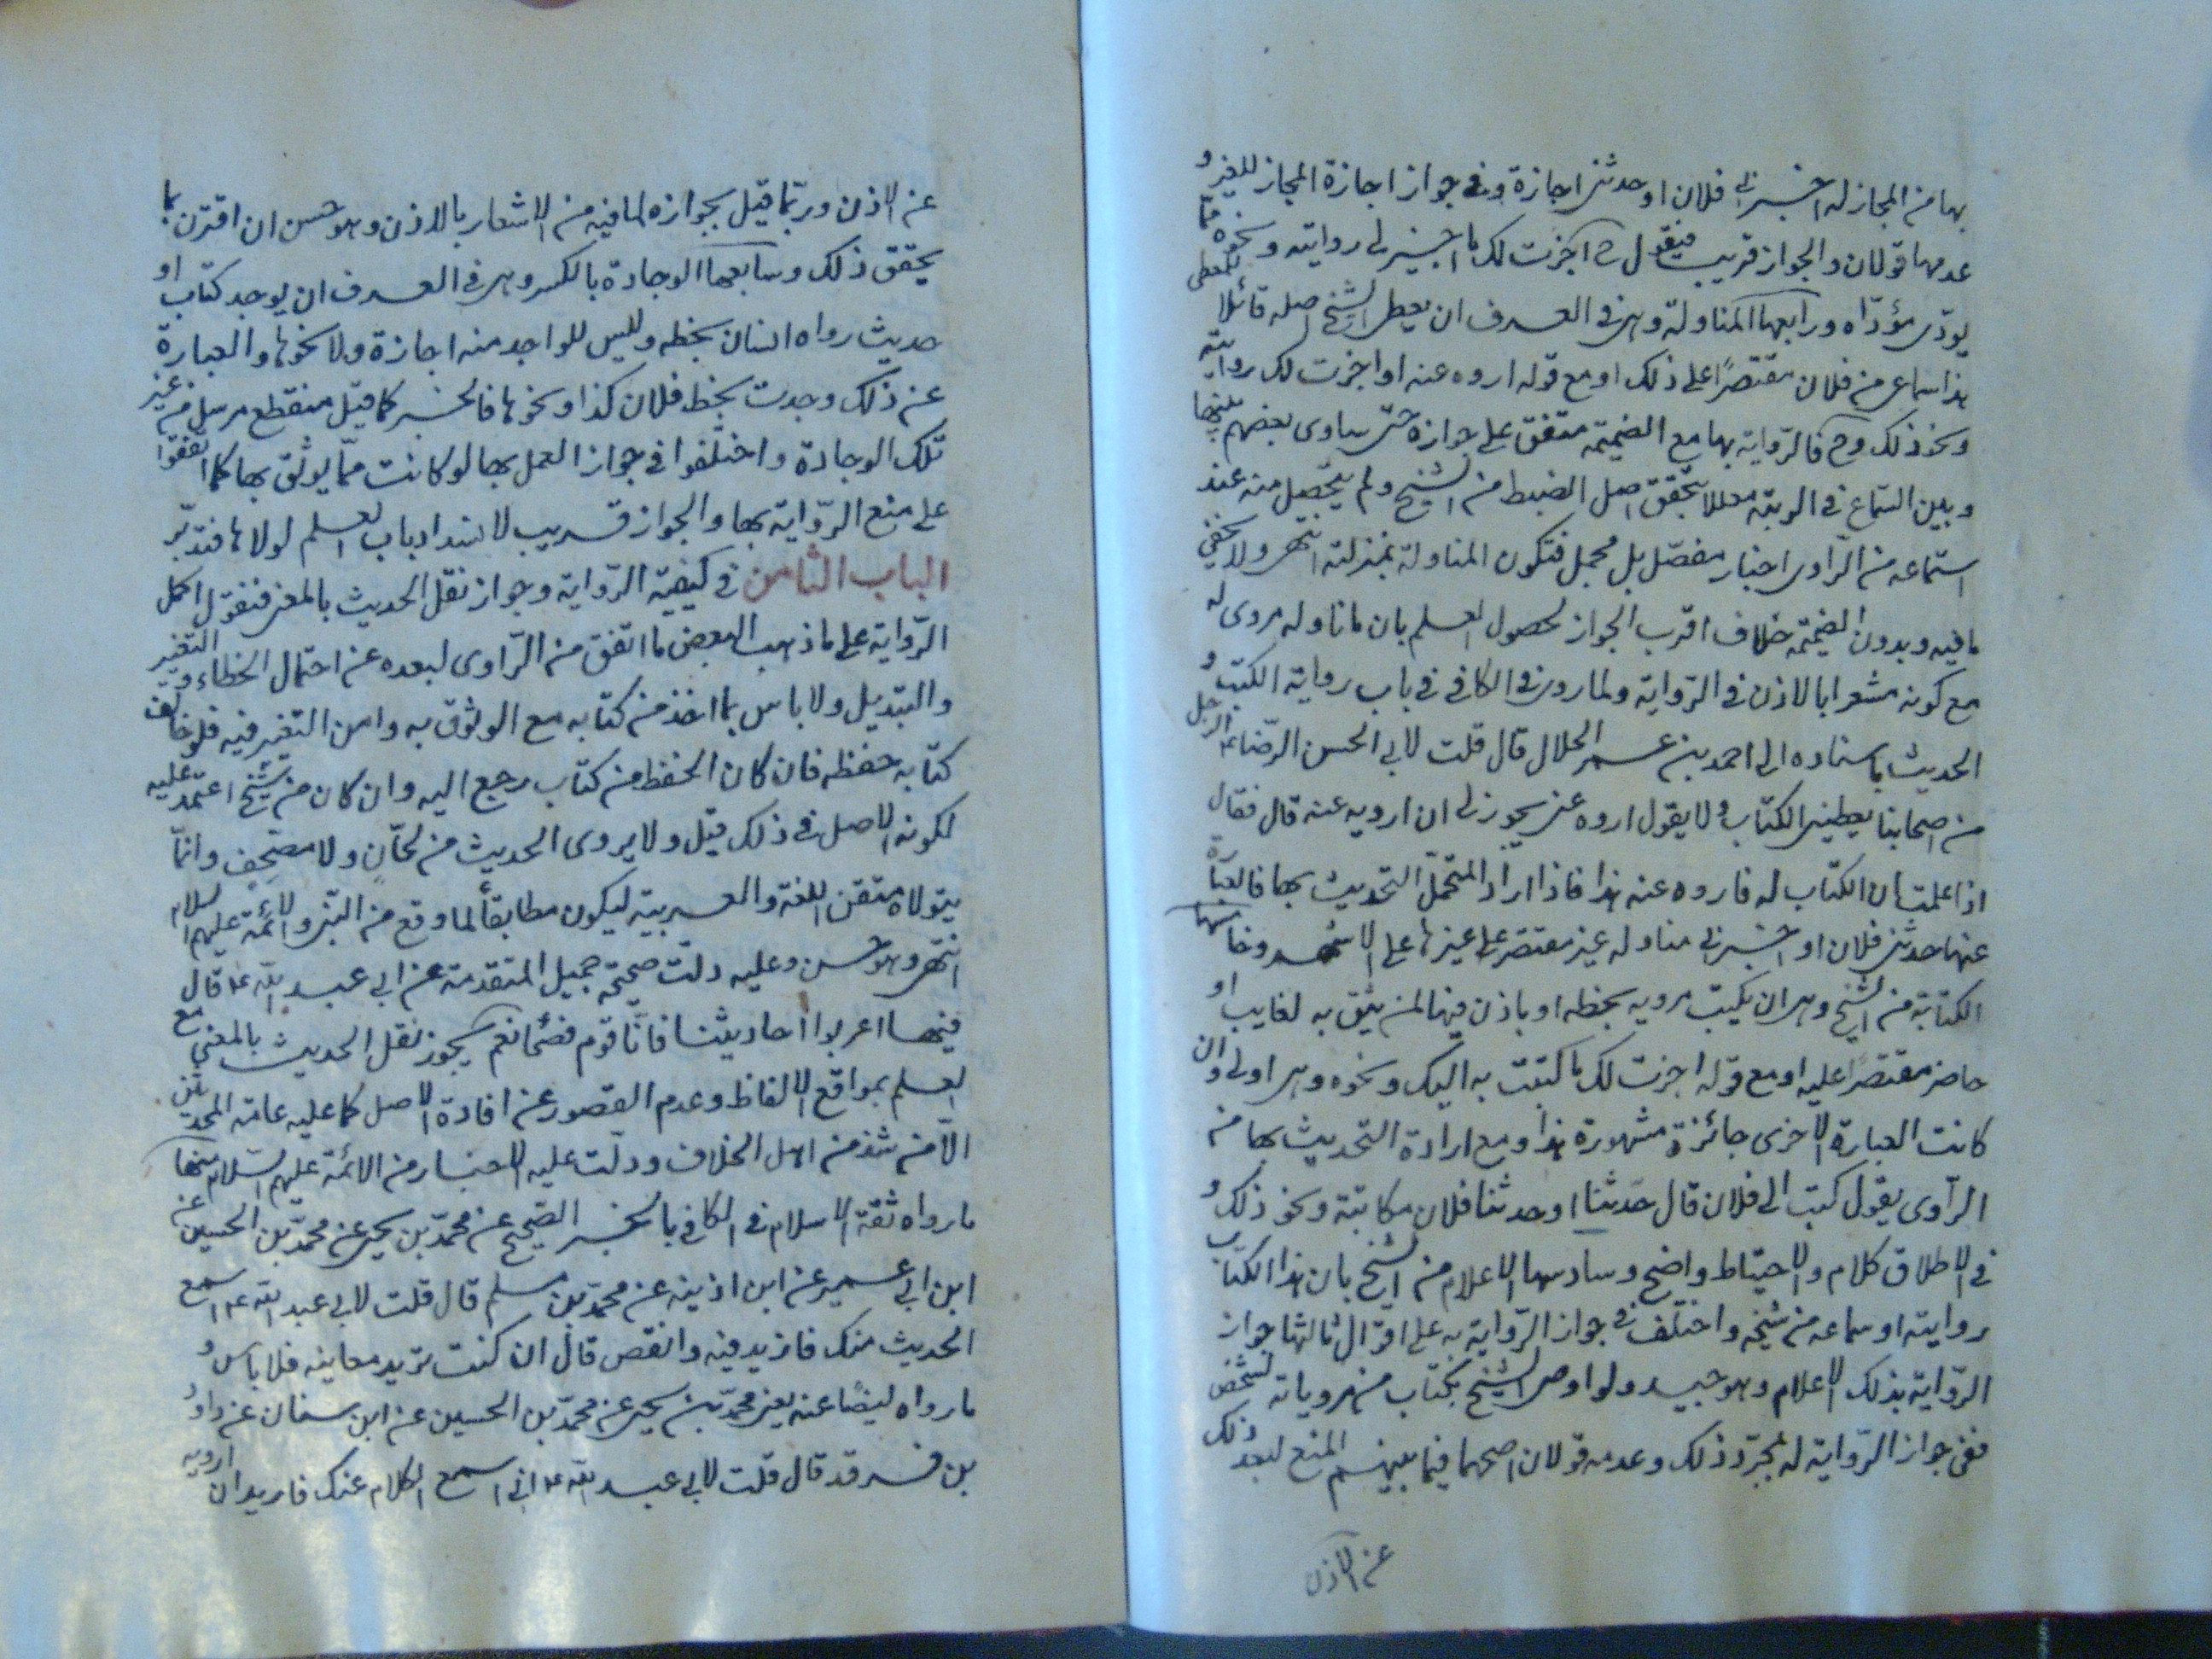 بها من المجاز له اخبرنى فلان او حدثنى اجازة وفى جواز اجازة المجاز للغير و
عدمها قولان والجواز قريب فيقول ح اجزت لك ما اجيز لى روايته ونحوه مما
يودى مؤداه ورابعها المناولة وهى فى العرف ان يعطى الشيخ اصله قائلا للمعطى
هذا سماعى من فلان مقتصرا على ذلك او مع قوله اروه عنه او اجزت لك روايته
ونحو ذلك وح فالرواية بها مع الضميمة متفق على جوازه حتى ساوى بعضهم بينها
وبين السماع فى الرتبة معللا بتحقق اصل الضبط من الشيخ ولم يتحصل منه عند
استماعه من الراوى اخبار مفصل بل مجمل فتكون المناولة بمنزلته انتهى ولا يخفى
ما فيه وبدون الضميمة خلاف اقربه الجواز لحصول العلم بان ما ناوله مروى له
مع كونه مشعرا بالاذن فى الرواية ولما روى فى الكافى فى باب رواية الكتب و
الحديث باسناده الى احمد بن عمر الحلال قال قلت لابى الحسن الرضا ع الرجل
من اصحابنا يعطينى الكتاب ولا يقول اروه عنى يجوز لى ان ارويه عنه قال فقال
اذا علمت ان الكتاب له فاروه عنه هذا فاذا اراد المتحمل التحديث بها فالعبارة
عنها حدثنى فلان او اخبرنى مناولة غير مقتصر على غيرها على الاشهر وخامسها
الكتابة من الشيخ وهى ان يكتب مرويه بخطه او باذن فيها لمن يثق به لغايب او
حاضر مقتصرا عليه او مع قوله اجزت لك ما كتبت به اليك ونحوه وهى اولى وان
كانت العبارة الاخرى جائزة مشهورة هذا ومع ارادة التحديث بها من
الراوى يقول كتب الى فلان قال حدثنا او حدثنا فلان مكاتبة ونحو ذلك و
فى الاطلاق كلام والاحتياط واضح وسادسها الاعلام من الشيخ بان هذا الكتاب
روايته او سماعه من شيخه واختلف فى جواز الرواية به على اقوال ثالثها جواز
الرواية بذلك الاعلام وهو جيد ولو اوصى الشيخ بكتاب من مروياته لشخص
ففى جواز الرواية له بمجرد ذلك وعدمه قولان اصحهما فيما بينهم المنع لبعد ذلك
عن الاذن
عن الاذن وربما قيل بجوازه لما فيه من الاشعار بالاذن وهو حسن ان اقترن بما
يحقق ذلك وسابعها الوجادة بالكسر وهى فى العرف ان يوجد كتاب او
حديث رواه انسان بخطه وليس للواجد منه اجازة ولا نحوها والعبارة
عن ذلك وجدت بخط فلان كذا ونحوها فالخبر كما قيل منقطع مرسل من غير
تلك الوجادة واختلفوا فى جواز العمل بها لو كانت مما يوثق بها كما اتفقوا
على منع الرواية بها والجواز قريب لانسداد باب العلم لولاها فتدبر
الباب الثامن فى كيفية الرواية وجواز نقل الحديث بالمعنى فنقول اكمل
الرواية على ما ذهب البعض ما اتفق من الراوى لبعده عن احتمال الخطاء والتغيير
والتبديل ولا باس بما اخذ من كتابه مع الوثوق به وامن التغيير فيه فلو خالف
كتابه حفظه فان كان الحفظ من كتاب رجع اليه وان كان من شيخ اعتمد عليه
لكونه الاصل فى ذلك قيل ولا يروى الحديث من لحان ولا مصحف وانما
يتولاه متقن اللغة والعربية ليكون مطابقا لما وقع من النبى والائمة عليهم السلام
انتهى وهو حسن وعليه دلت صحيحة جميل المتقدمة عن ابى عبد الله ع قال
فيها اعربوا احاديثنا فانا قوم فصحا نعم يجوز نقل الحديث بالمعنى مع
العلم بمواقع الالفاظ وعدم القصور عن افادة الاصل كما عليه عامة المحدثين
الا من شذ من اهل الخلاف ودلت عليه الاخبار من الائمة عليهم السلام منها
ما رواه ثقة الاسلام فى الكافى بالخبر الصحيح عن محمد بن يحيى عن محمد بن الحسين عن
ابن ابى عمير عن ابن اذينة عن محمد بن مسلم قال قلت لابى عبد الله ع اسمع
الحديث منك فازيد فيه وانقص قال ان كنت تريد معانيه فلا باس و
ما رواه ايضا عنه يعنى محمد بن يحيى عن محمد بن الحسين عن ابن سنان عن داود
بن فرقد قال قلت لابى عبد الله ع انى اسمع الكلام عنك فاريد ان ارويه